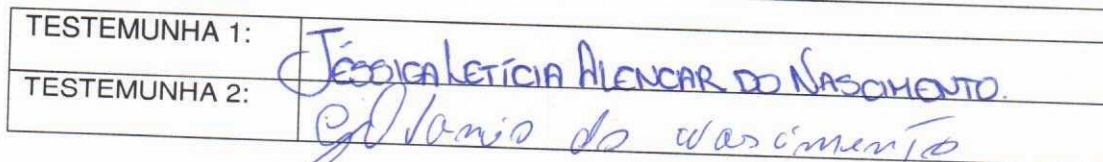 TESTEMUNHA 1: JÉSSICA LETÍCIA ALENCAR DO NASCIMENTO.
TESTEMUNHA 2: do Nascimento